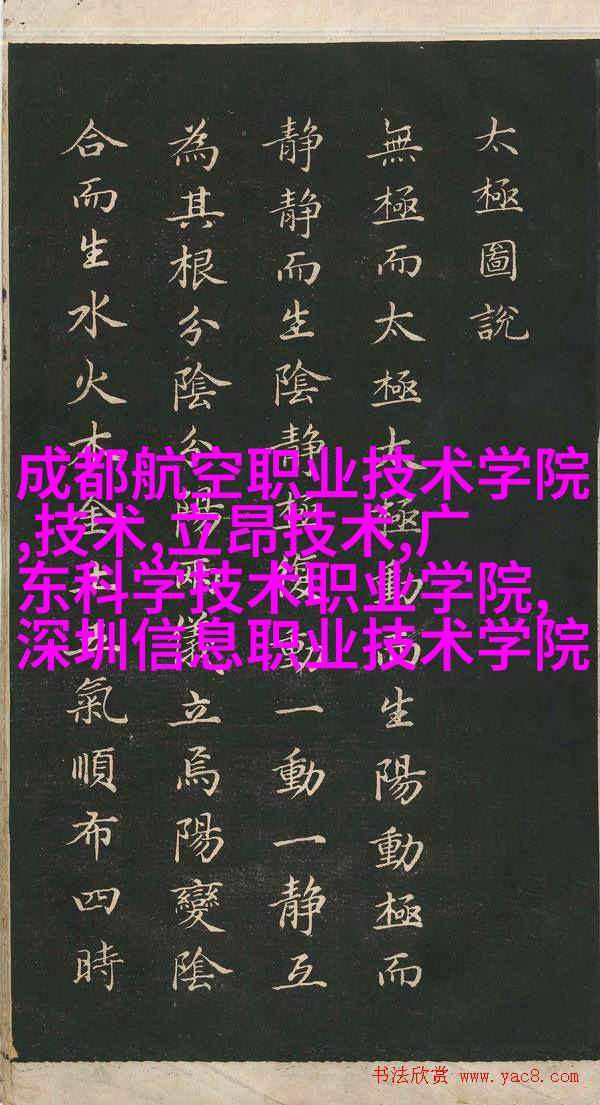 太極圖說
無極而太極太極動而生陽動極而
静静而生陰静極復動一動一静互
為其根分陰分陽兩儀立焉陽變陰
合而生水火木金土五氣順布四時
成都航空职业技术学院
,技术,立昂技术,广
东科学技术职业学院,
深圳信息职业技术学院
书法欣赏 www.yac8.com